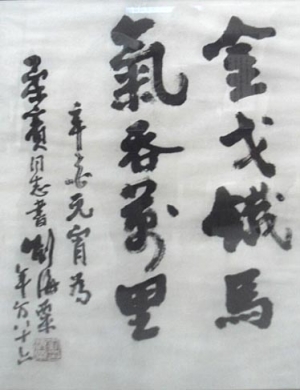 金戈鐵馬
氣吞萬里
辛酉元宵為
賓同志書劉海粟
年方八十六